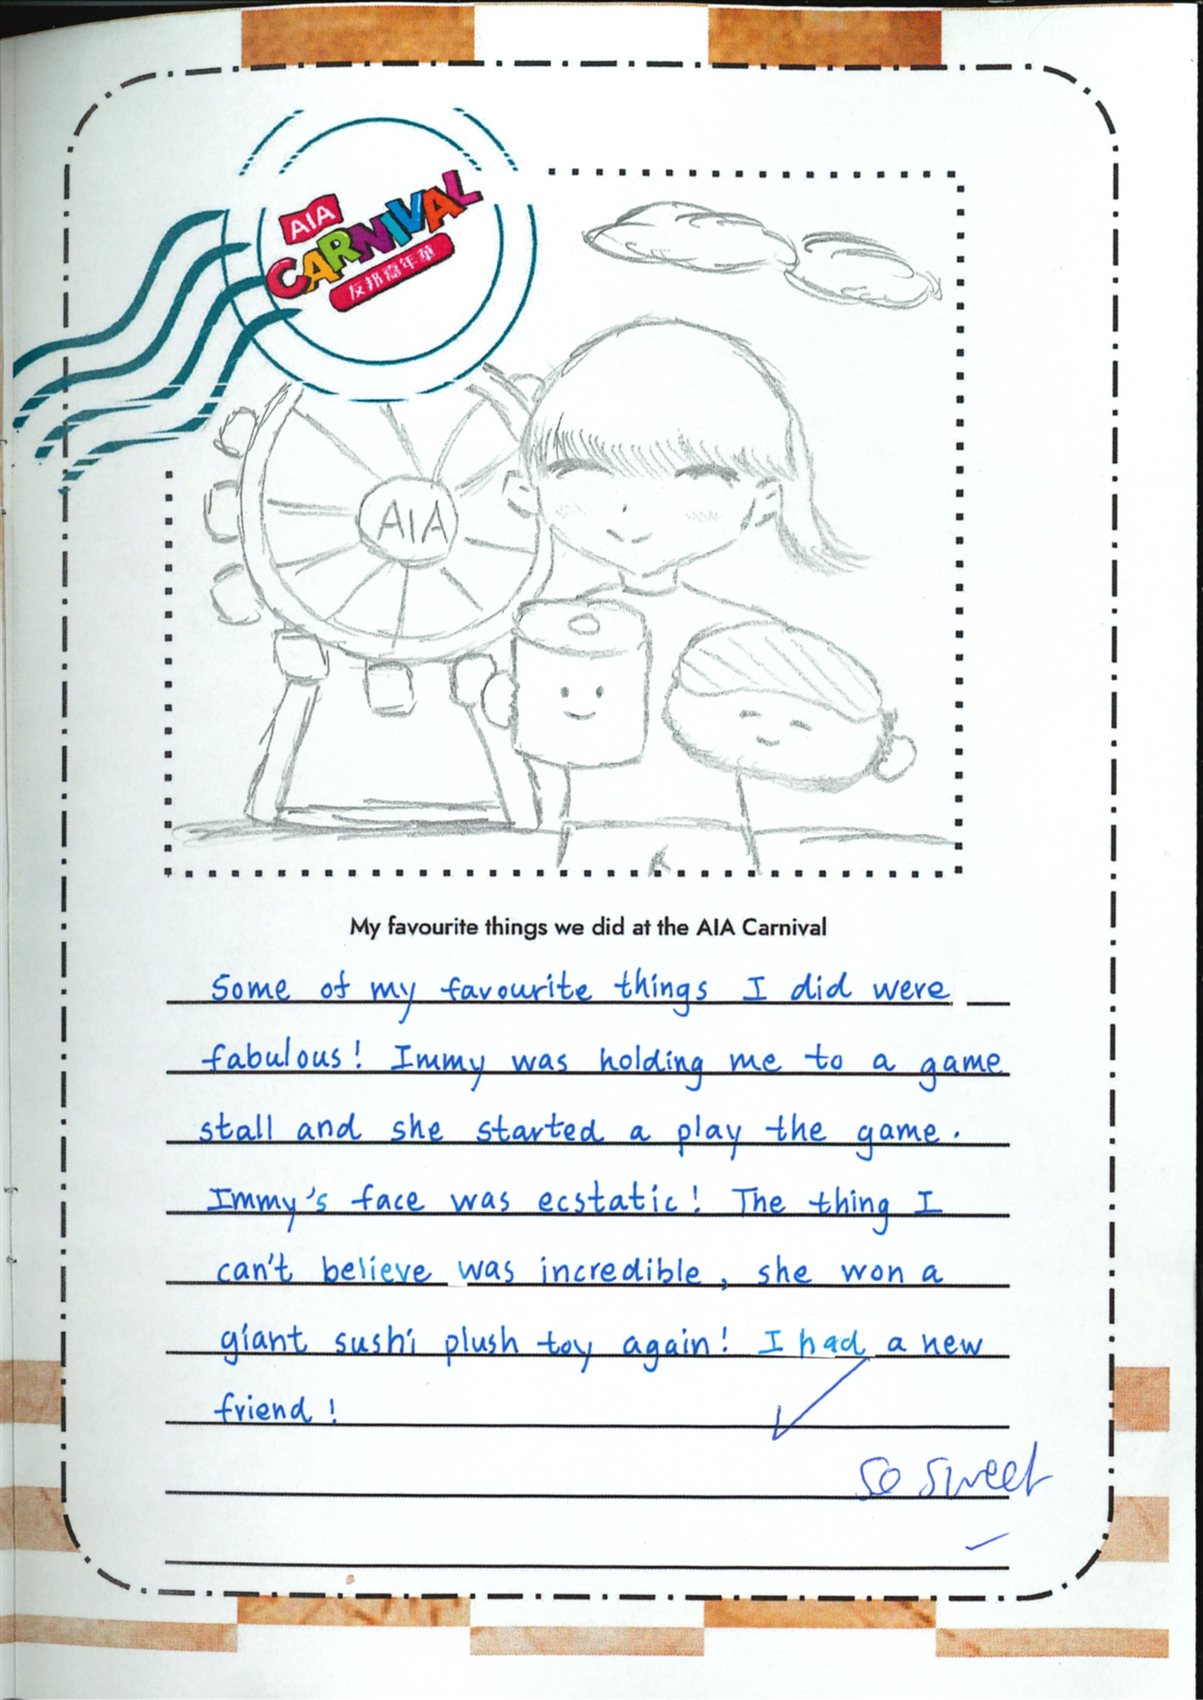 AIA
CARNIVAL
友邦嘉年華
AIA
My favourite things we did at the AIA Carnival
Some of my favourite things I did were
fabulous! Immy was holding me to a game
stall and she started a play the game.
Immy's face was ecstatic! The thing I
can't believe was incredible, she won a
giant sushi plush toy again! I had a new
friend!
So sweet